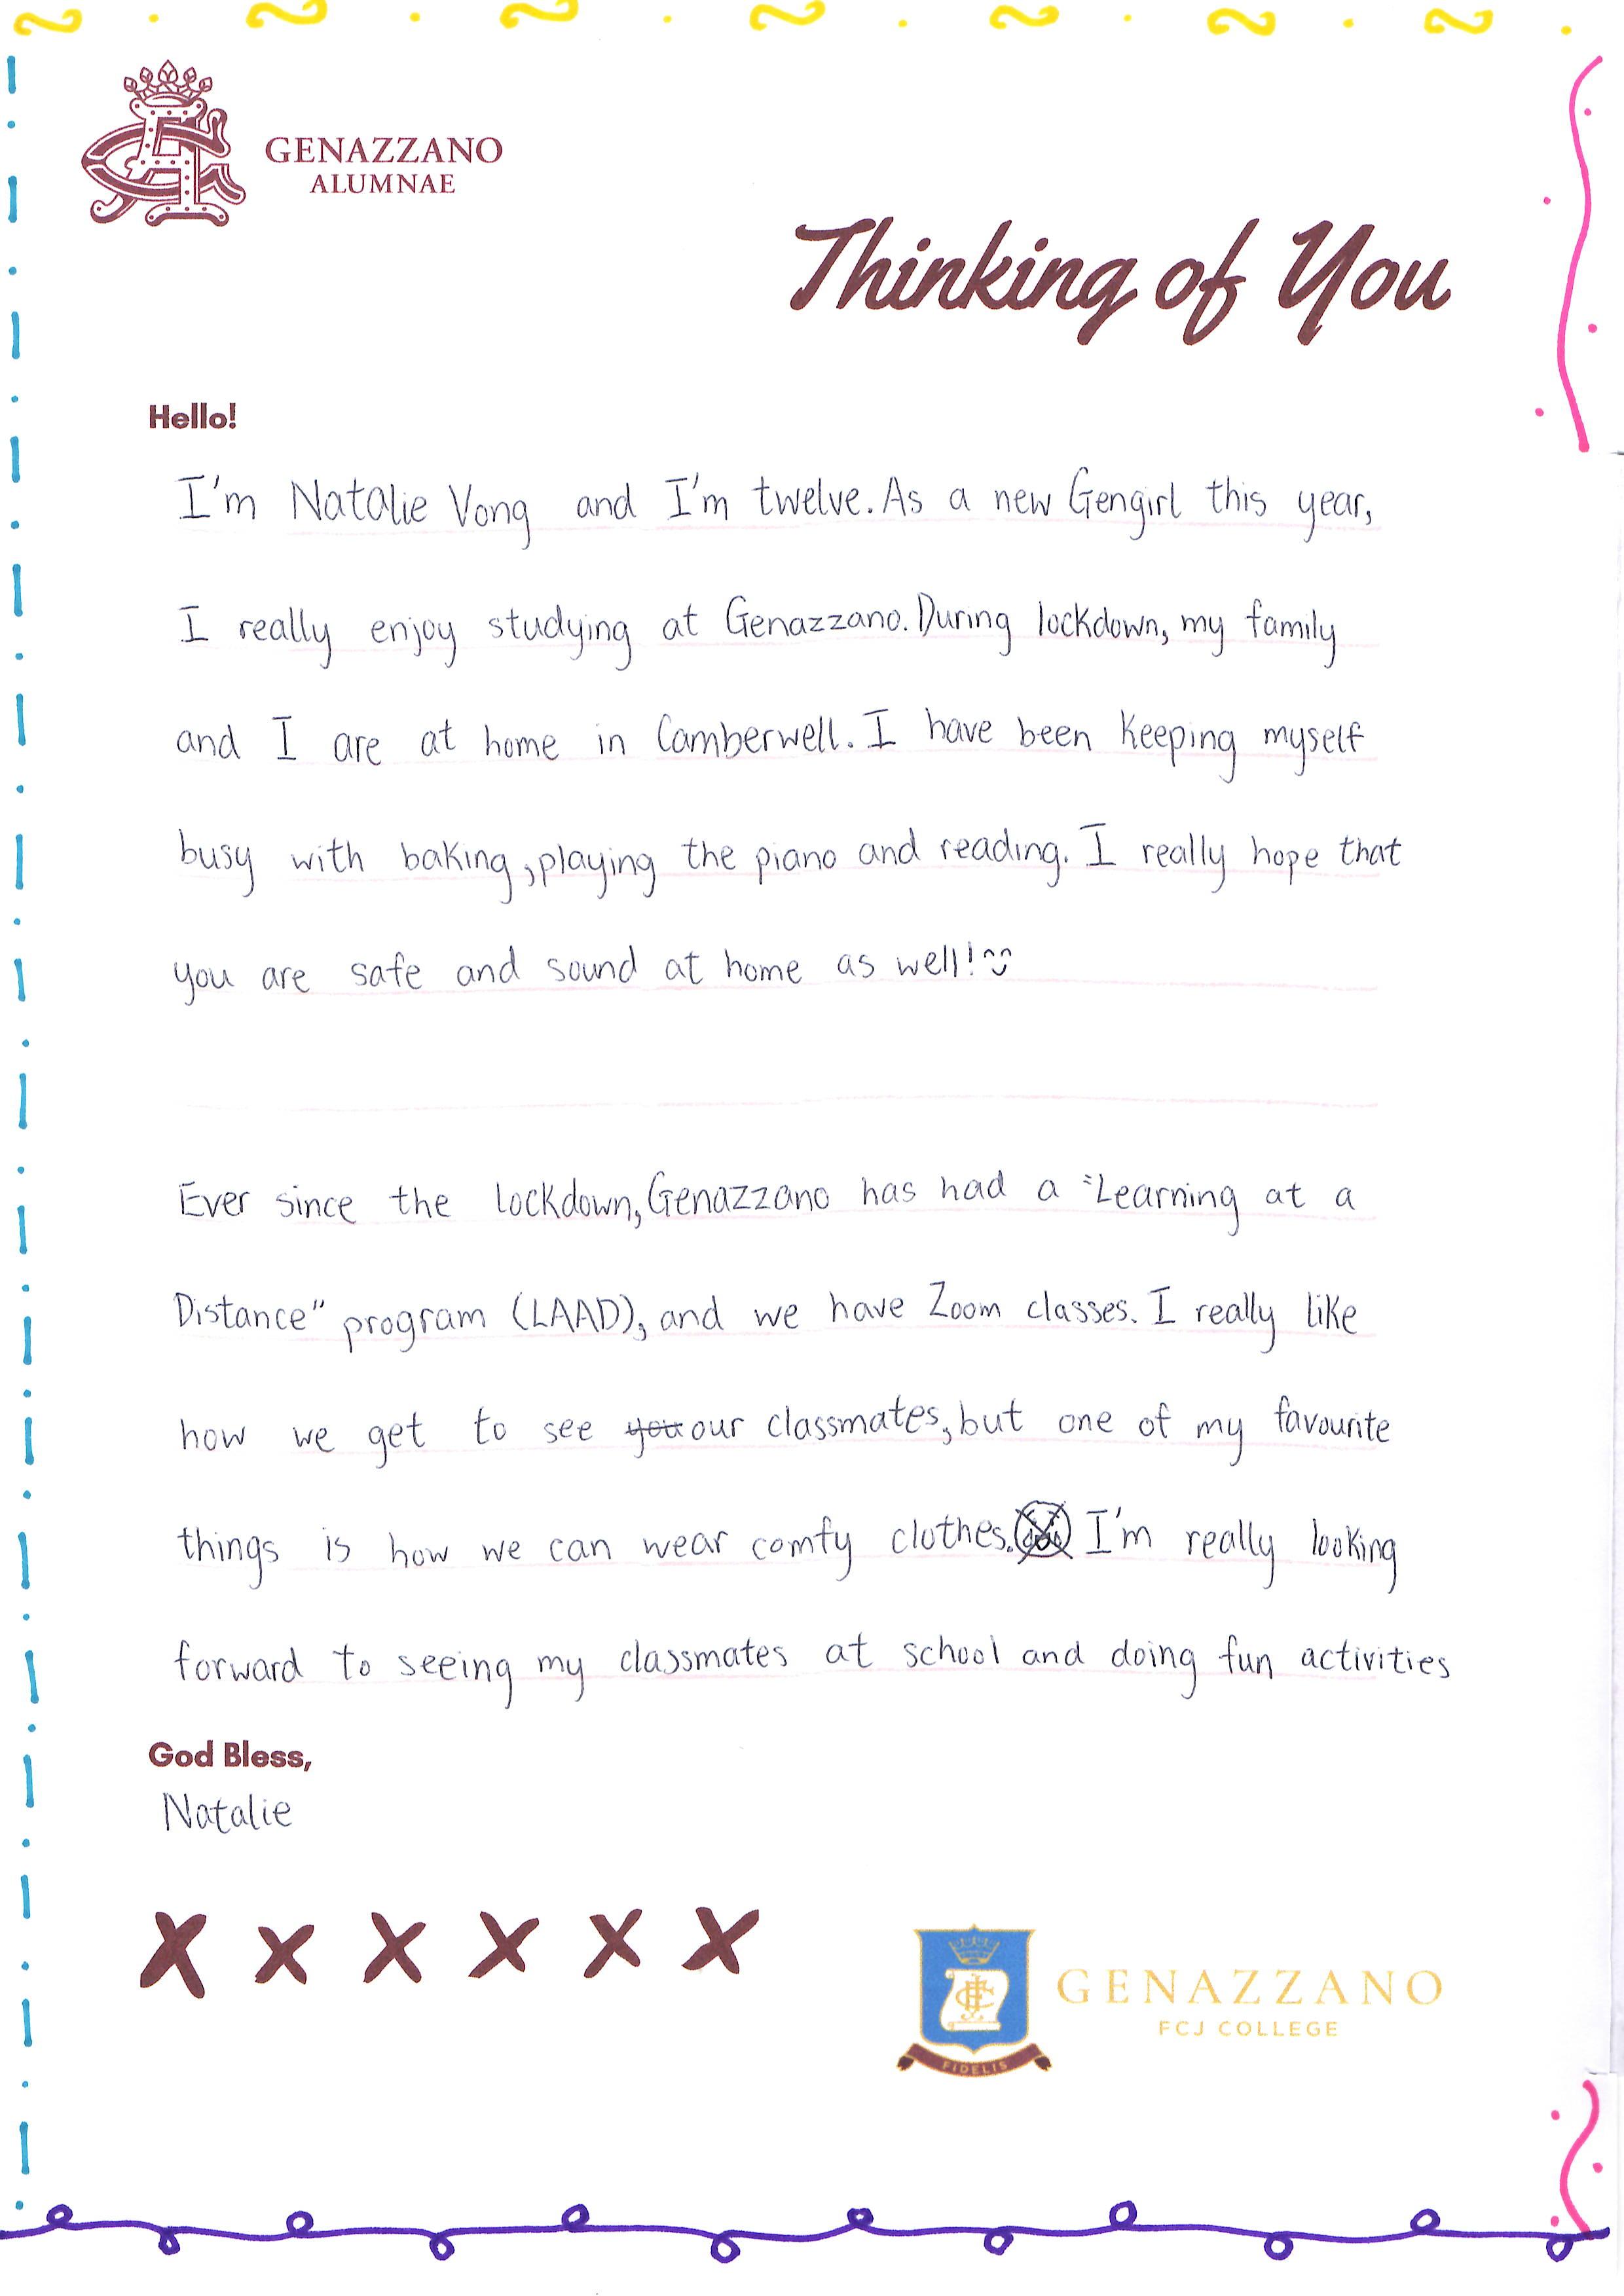 GENAZZANO
ALUMNAE
Thinking of You
Hello!
I'm Natalie Vong and I'm twelve. As a new Gengirl this year,
I really enjoy studying at Genazzano. During lockdown, my family
and I are at home in Camberwell. I have been keeping myself
busy with baking, playing the piano and reading. I really hope that
you are safe and sound at home as well!
Ever since the lockdown, Genazzano has had a "Learning at a
Distance" program (LAAD), and we have Zoom classes. I really like
how we get to see you our classmates, but one of my favourite
things is how we can wear comfy clothes. I'm really looking
forward to seeing my classmates at school and doing fun activities
God Bless,
Natalie
X X X X X X
GENAZZANO
FCJ COLLEGE
FIDELIS